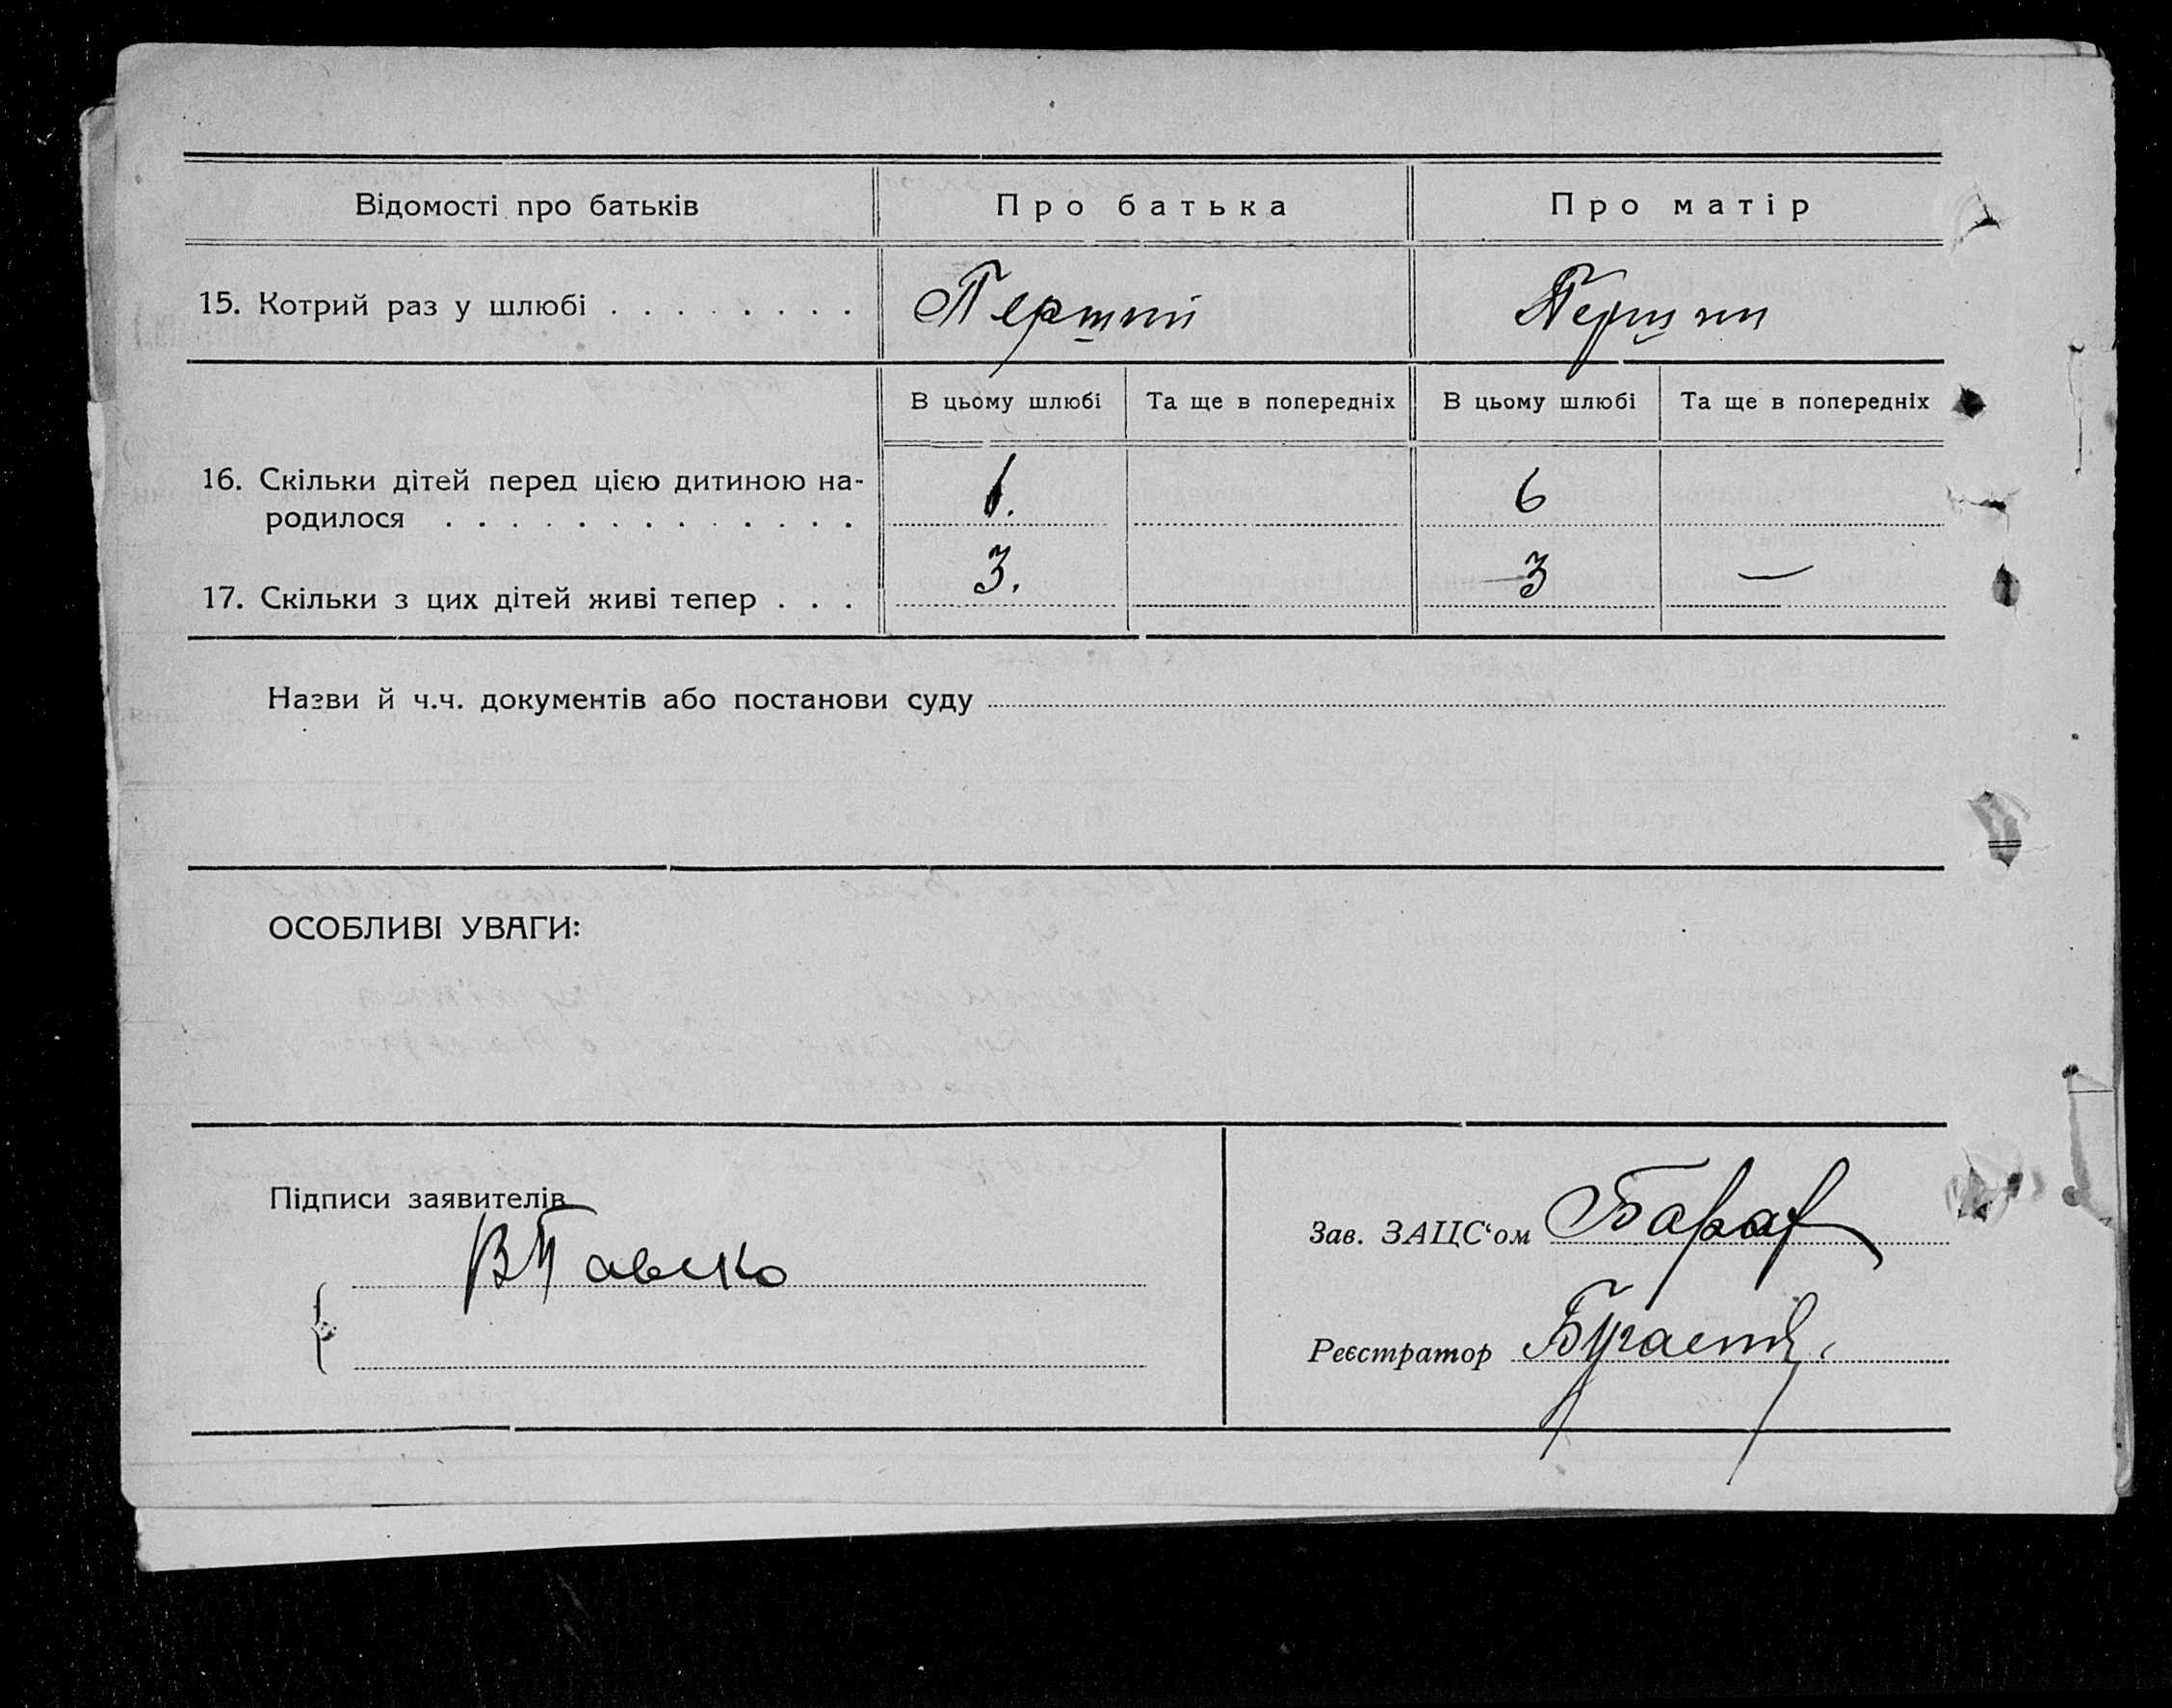 Відомості про батьків Про батька Про матір
15. Котрий раз у шлюбі . . . . . . . . Перший Перший
В цьому шлюбі Та ще в попередніх В цьому шлюбі Та ще в попередніх
16. Скільки дітей перед цією дитиною на-
родилося . . . . . . . . . . . . . 6. 6
17. Скільки з цих дітей живі тепер . . . 3. 3 —
Назви й ч.ч. документів або постанови суду
ОСОБЛИВІ УВАГИ:
Підписи заявителів
Зав. ЗАЦС‘ом
Реєстратор